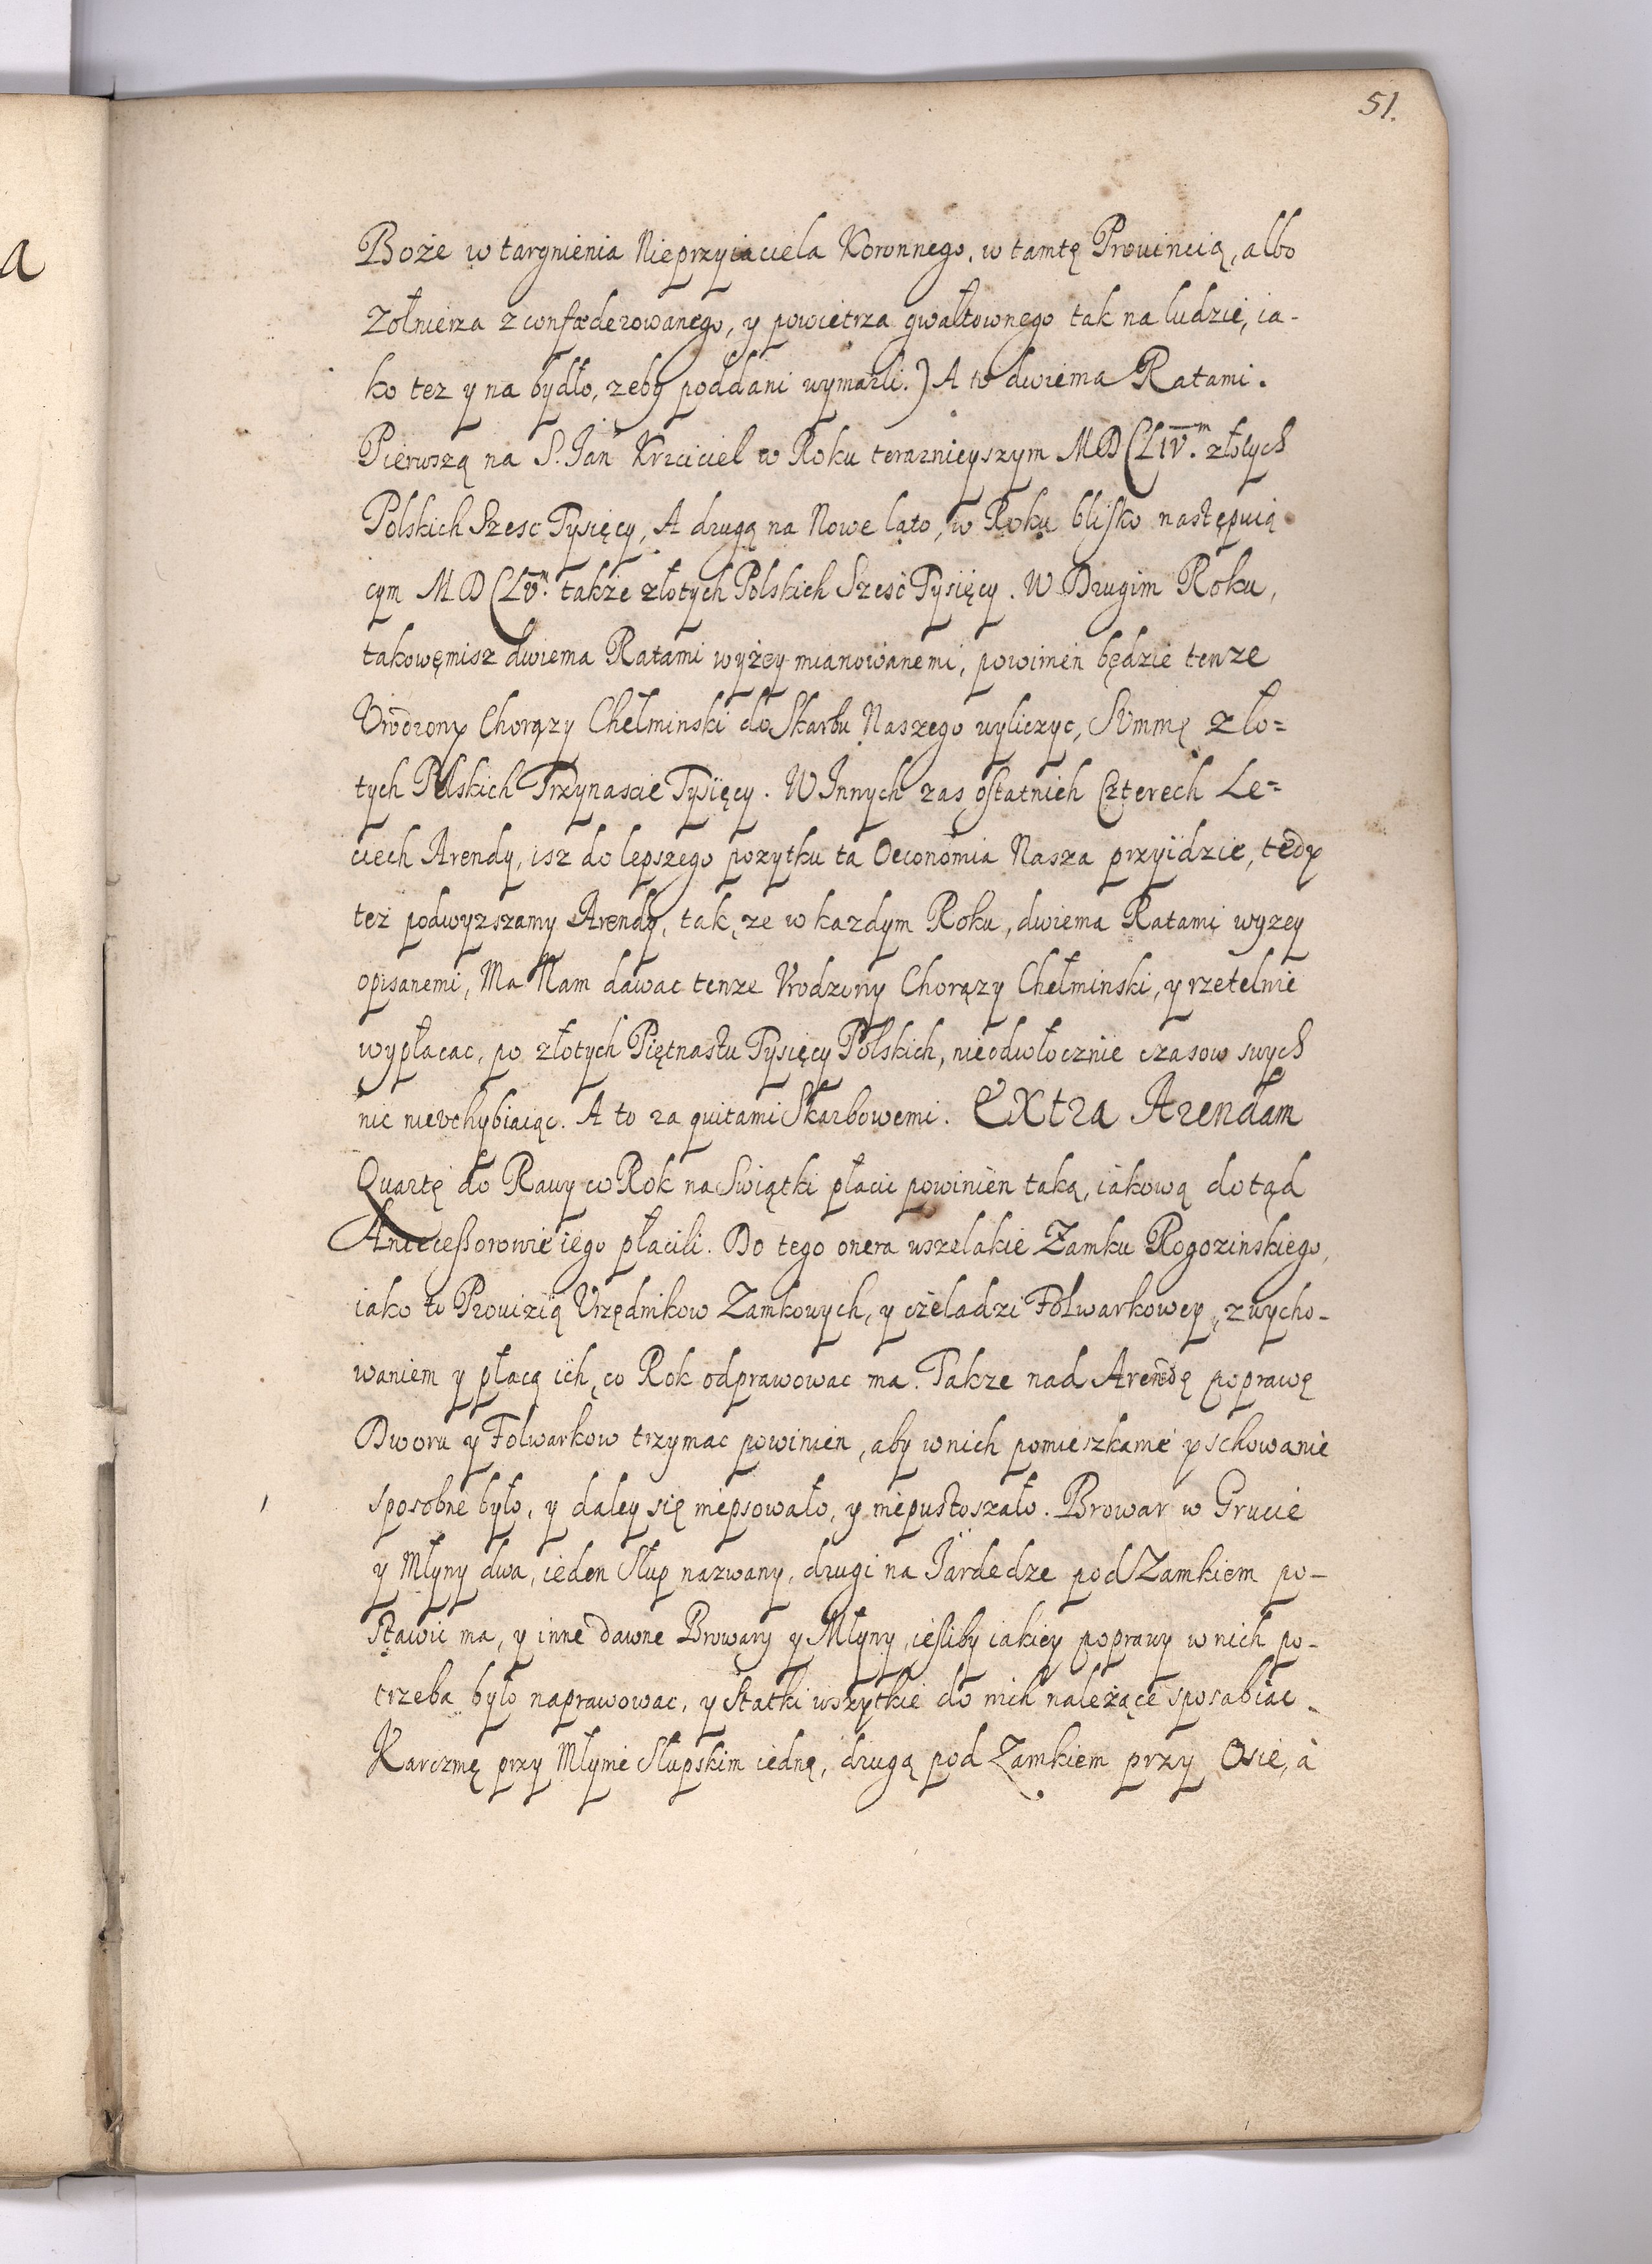 51.
a
Boże wtargnienia Nieprzyiaciela Koronnego, w tamtę Prouincią, albo
Zołnierza zconfœderowanego, y powietrza gwałtownego tak na ludzie, ia-
ko tez y na bydło, zeby poddani wymarli.) A to dwiema Ratami.
Pierwszą na S. Jan Krzciciel w Roku teraznieyszym MDCLIVm. złotych
Polskich Szesc Tysięcy, A drugą na Nowe lato, w Roku blisko następuią
cym MDCLVm. także złotych Polskich Szesć Tysięcy. W Drugim Roku,
takowęmisz dwiema Ratami wyżey mianowanemi, powinien będzie tenze
Vrodzony Chorązy Chełminski do Skarbu Naszego wyliczyc, Summę zło=
tych Polskich Trzynascie Tysięcy. W Innych zas ostatnich Czterech Le=
ciech Arendy, isz do lepszego pozytku ta Oeconomia Nasza przyidzie, tedy
też podwyzszamy Arendy, tak, ze w kazdym Roku, dwiema Ratami wyzey
opisanemi, Ma Nam dawac tenze Vrodzony Chorązy Chełminski, y rzetelnie
wypłacac, po złotych Piętnastu Tysięcy Polskich, nieodwłocznie czasow swych
nic nievchybiaiąc. A to za quitami Skarbowemi. Extra Arendam
Quartę do Rawy co Rok na Swiątki płacic powinien taką, iakową dotąd
Antecessorowie iego płacili. Do tego onera wszelakie Zamku Rogozinskiego,
iako to Prouizią Vrzędnikow Zamkowych, y czeladzi Folwarkowey, z wycho-
waniem y płacą ich, co Rok odprawowac ma. Takze nad Arendę poprawę
Dworu y Folwarkow trzymac powinien, aby w nich pomieszkanie y schowanie
sposobne było, y daley się niepsowało, y niepustoszało. Browar w Grucie
y Młyny dwa, ieden Słup nazwany, drugi na Jardedze pod Zamkiem po-
stawic ma, y inne dawne Browary y Młyny, iesliby iakiey poprawy w nich po-
trzeba było naprawowac, y Statki wszytkie do nich należące sposabiac.
Karczmę przy Młynie Słupskim iednę, drugą pod Zamkiem przy Osie, à